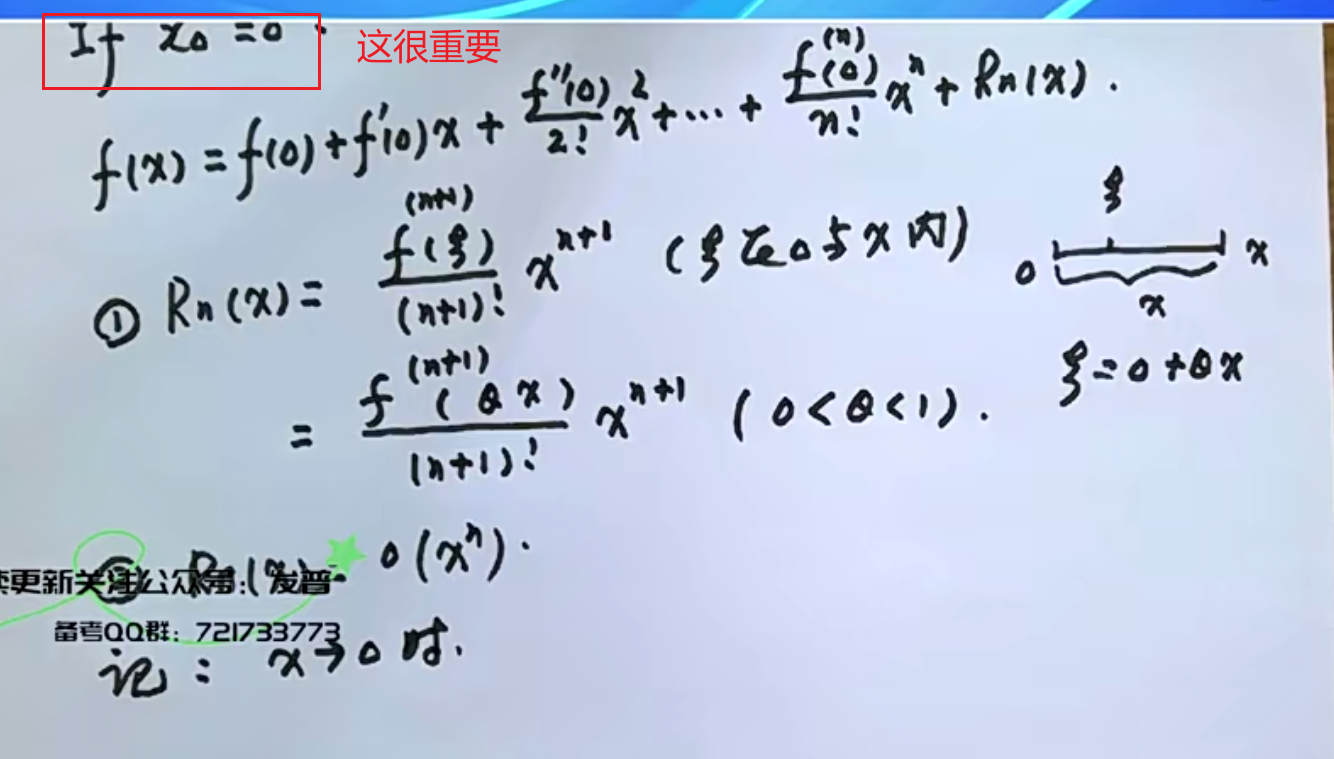 If x₀ = 0 .
这很重要
f(x) = f(0) + f'(0)x + f''(0)/2! x² + … + f⁽ⁿ⁾(0)/n! xⁿ + Rn(x) .
① Rn(x) = f⁽ⁿ⁺¹⁾(ξ)/(n+1)! xⁿ⁺¹ (ξ在0与x内)
ξ
0 x
x
= f⁽ⁿ⁺¹⁾(θx)/(n+1)! xⁿ⁺¹ (0<θ<1) .
ξ = 0 + θx
② Rn(x) = o(xⁿ) .
续更新关注公众号：发普
备考QQ群：721733773
记： x→0 时.